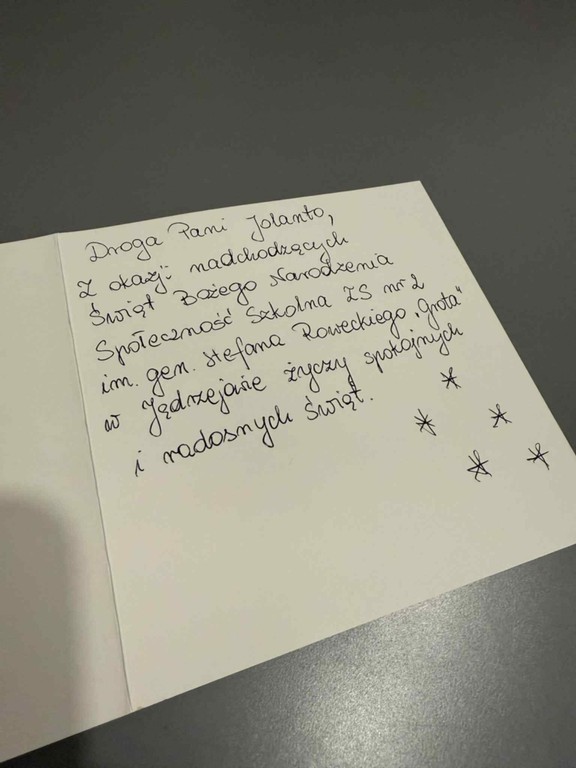 Droga Pani Jolanto,
Z okazji nadchodzących
Świąt Bożego Narodzenia
Społeczność Szkolna ZS nr 2
im. gen. Stefana Roweckiego „Grota"
w Jędrzejowie życzy spokojnych
i radosnych Świąt.